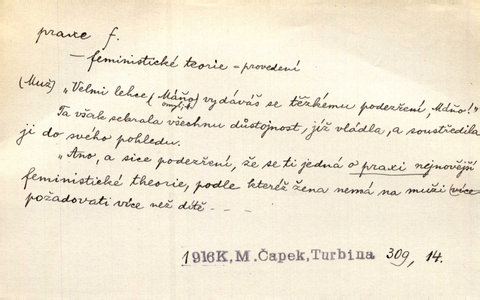 praxe f.
– feministické teorie – provedení
(Muž) „Velmi lehce (Máňo vydáváš se těžkému podezření, Máňo!"
omylem
Ta však sebrala všechnu důstojnost, jíž vládla, a soustředila
ji do svého pohledu.
„Ano, a sice podezření, že se ti jedná o praxi nejnovější
feministické theorie, podle kteréž žena nemá na muži (více
požadovati více než dítě – – –
1916K,M.Čapek,Turbina 309, 14.